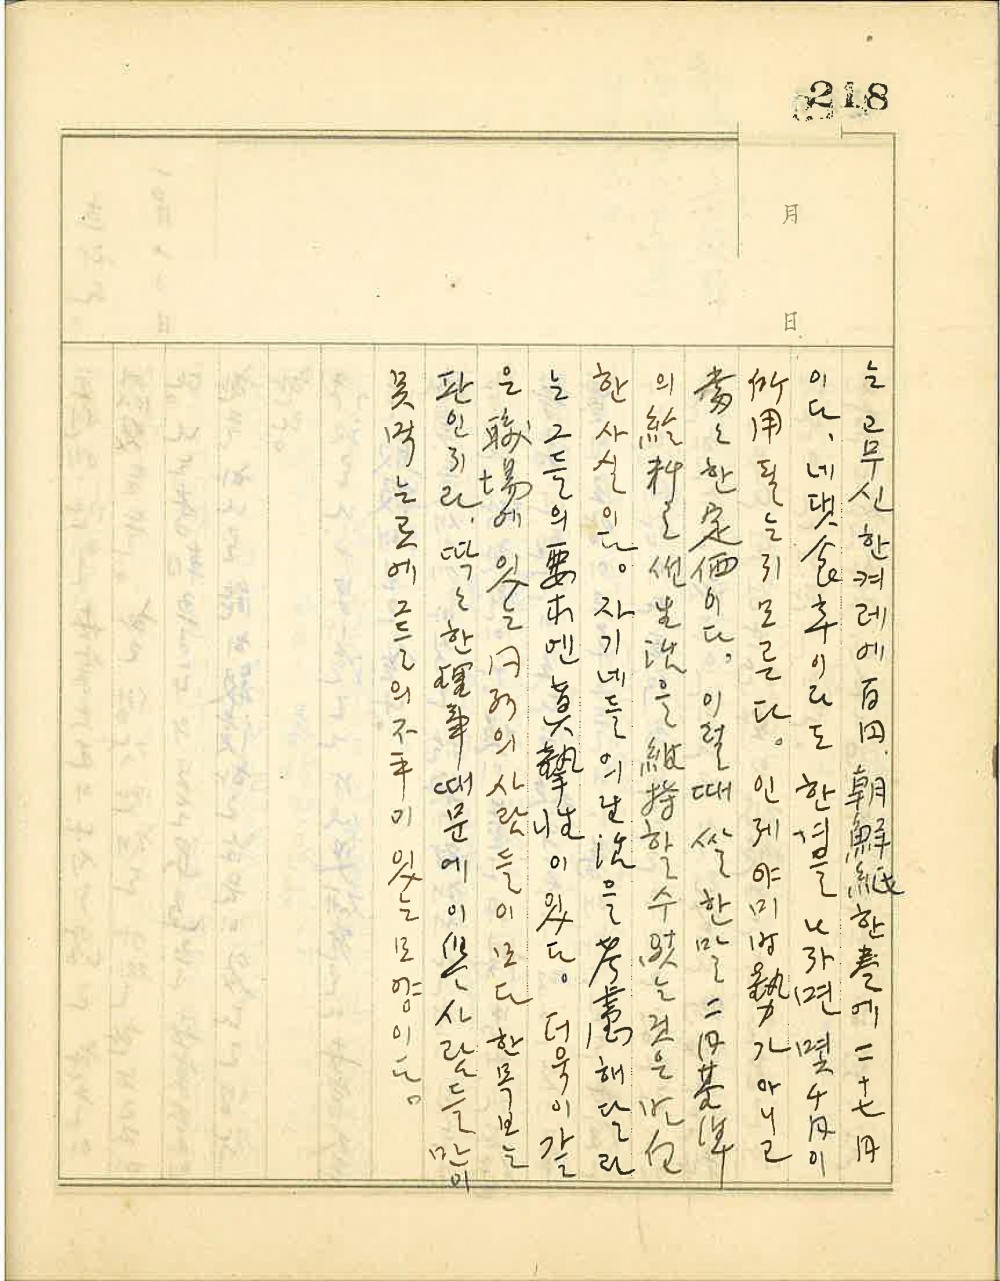 218
月 日
는 고무신 한켜레에 百円. 朝鮮紙 한卷에 二十七円
이다. 네댓食후이라도 한겸을 나라면 몇千円이
所用될는지 모른다. 인제 야미時勢가 아니고
當々한 定価이다. 이럴때 쌀한말 二円基準
의 給料로썬 生活을 維持할수 없는것은 明白
한 사실이다. 자기네들의 生活을 考慮해달라
는 그들의 要求엔 眞摯性이 있다. 더욱이 같
은 職場에 있는 同務의 사람들이 모다 한목보는
판인지라. 딱々한 理事 때문에 이 사람들만이
못먹는로에 그들의 不幸이 있는 모양이다.